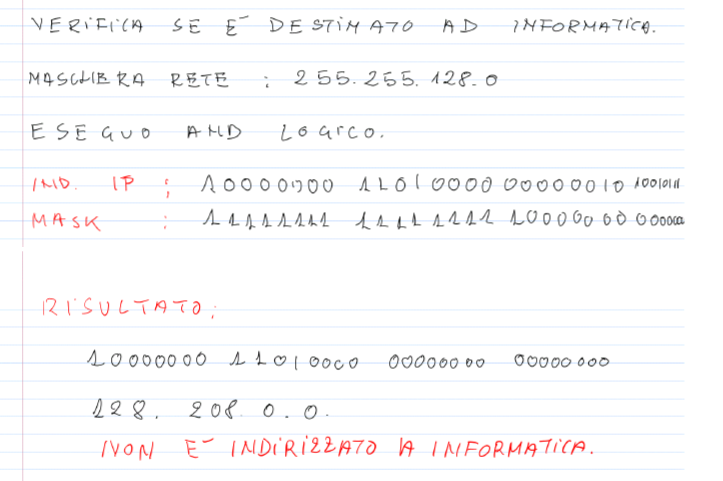 VERIFICA SE E' DESTINATO AD INFORMATICA.
MASCHERA RETE : 255.255.128.0
ESEGUO AND LOGICO.
IND. IP : 10000000 11010000 00000010 10010111
MASK : 11111111 11111111 10000000 000000
RISULTATO:
10000000 11010000 00000000 00000000
128. 208. 0. 0.
NON E' INDIRIZZATO A INFORMATICA.